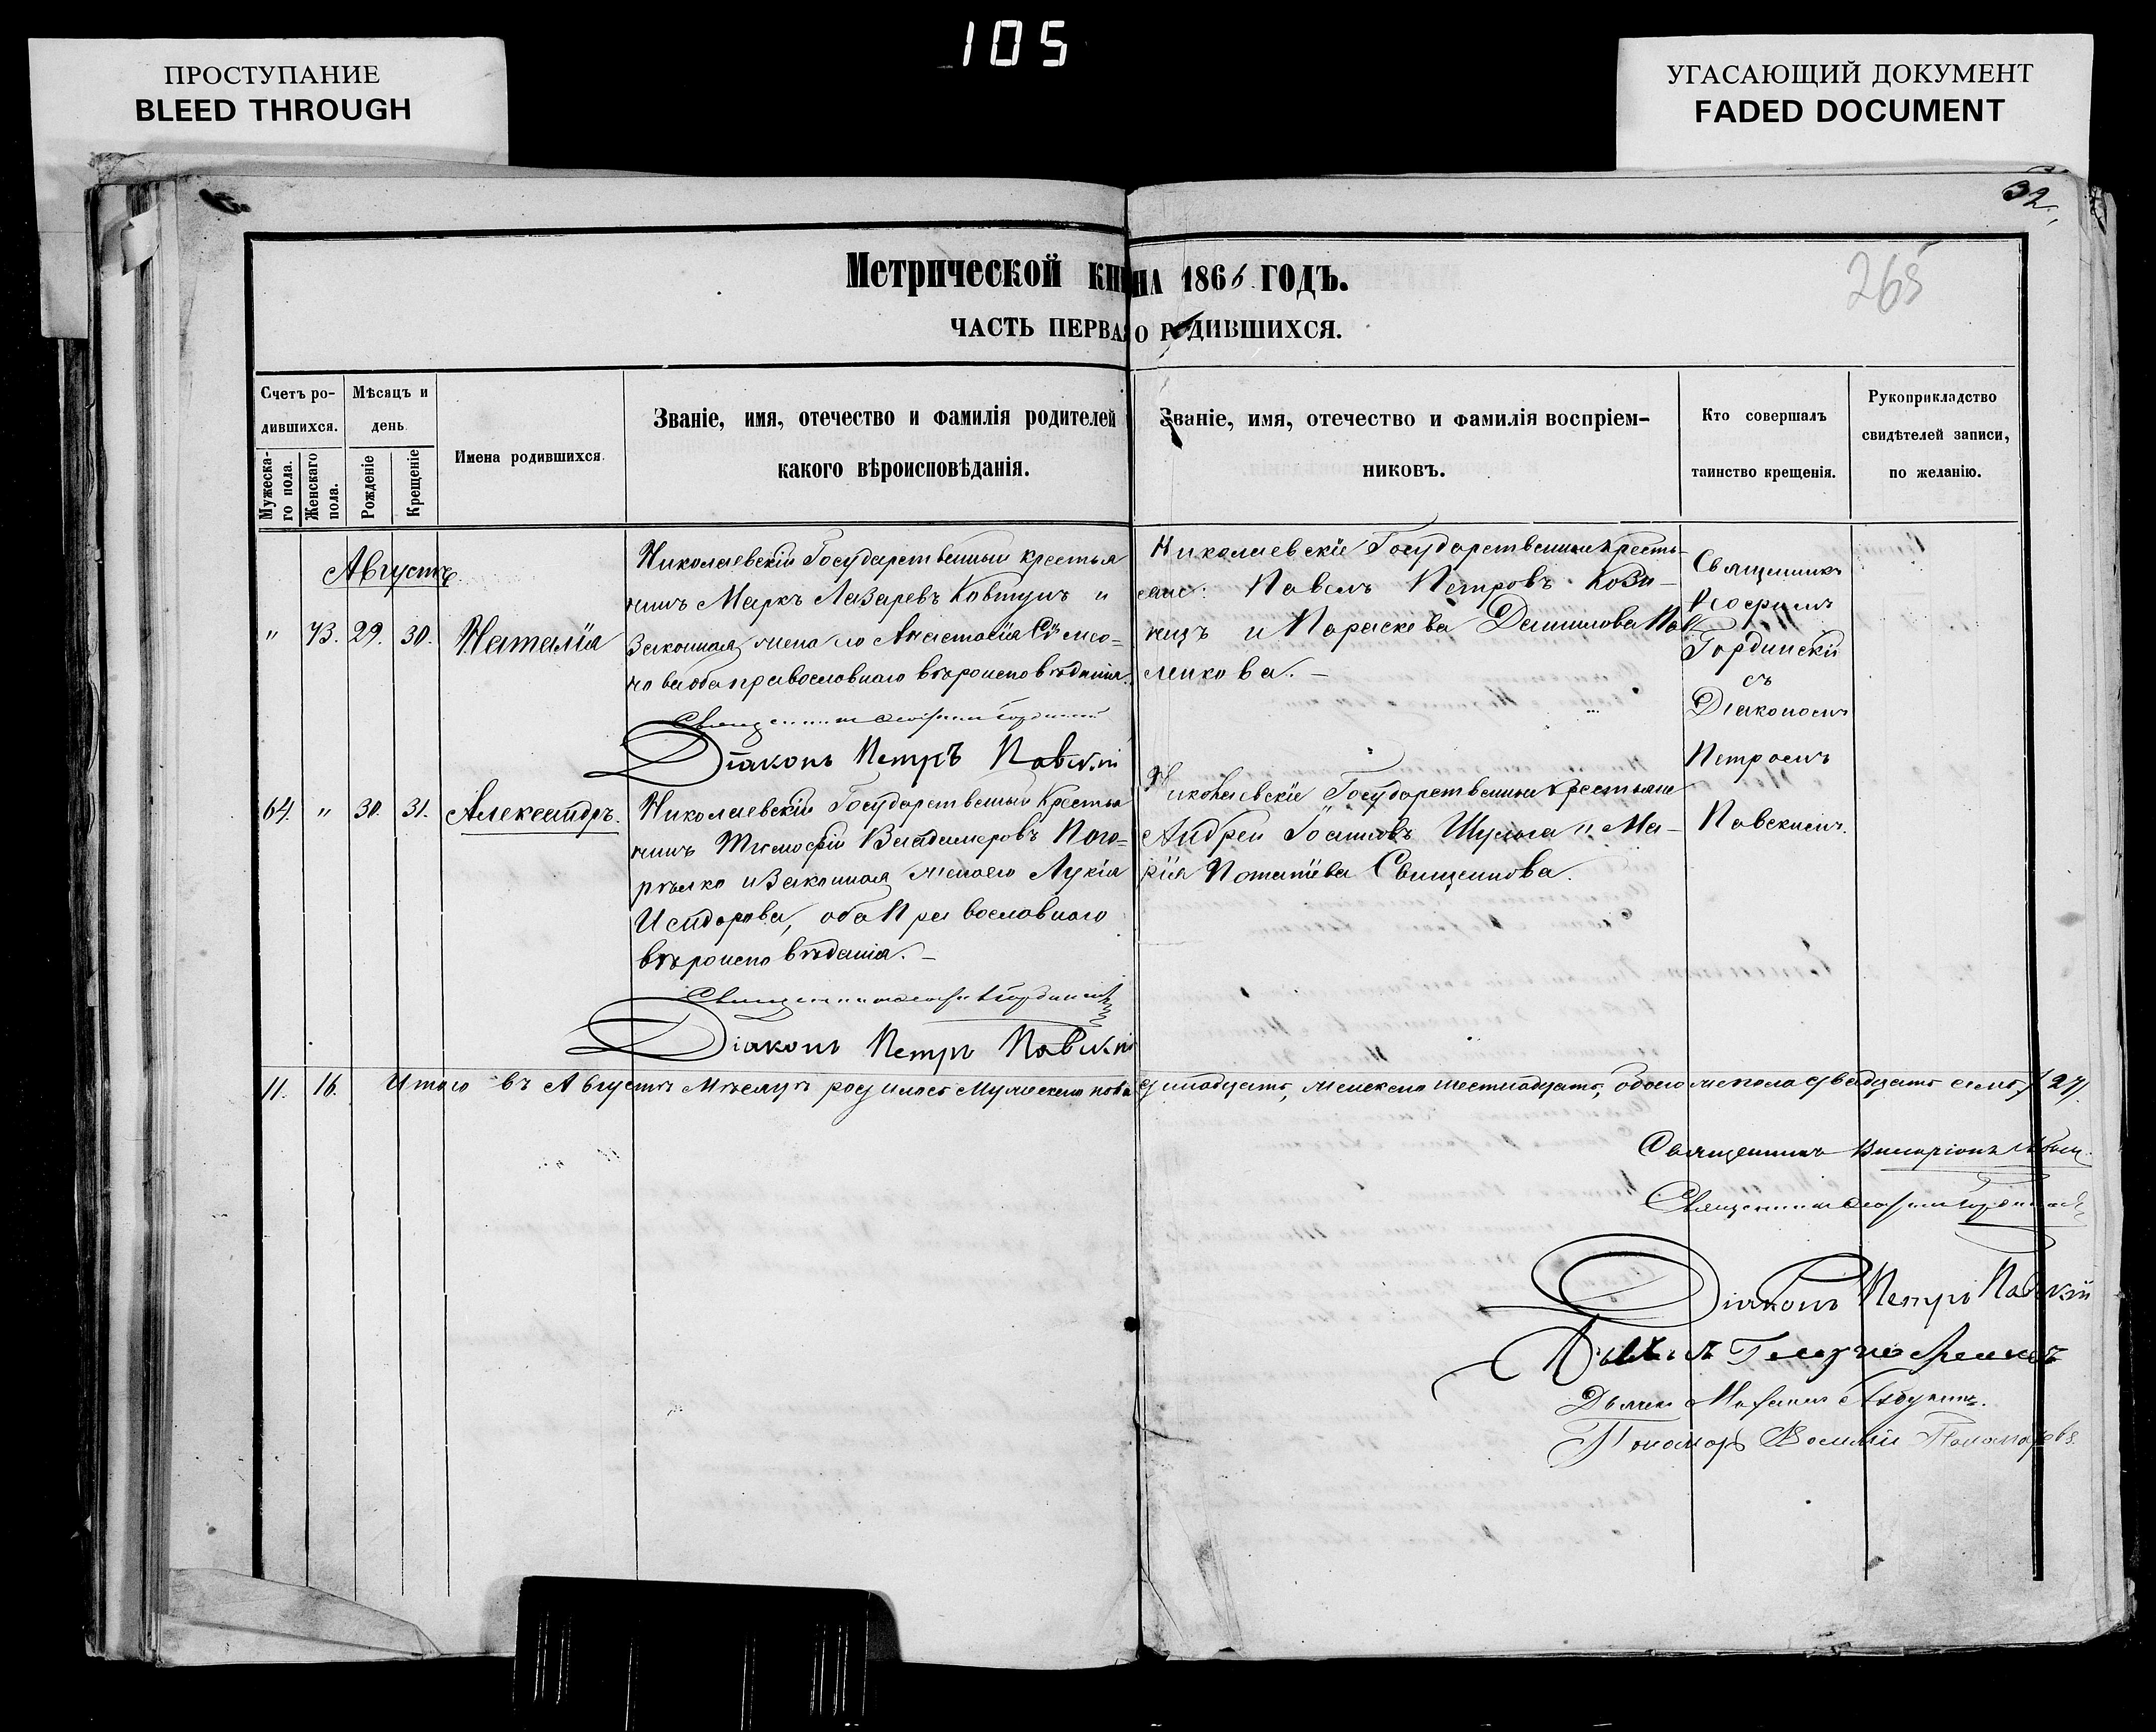 105
ПРОСТУПАНИЕ
BLEED THROUGH
УГАСАЮЩИЙ ДОКУМЕНТ
FADED DOCUMENT
32.
265
Метрической кни на 1866 ГОДЪ.
ЧАСТЬ ПЕРВАЯ О РОДИВШИХСЯ.
Счетъ ро-
дившихся.
Мужеска-
го пола.
Женскаго
пола.
Мѣсяцъ и
день.
Рожденіе
Крещеніе
Имена родившихся.
Званіе, имя, отечество и фамилія родителей
какого вѣроисповѣданія.
Званіе, имя, отечество и фамилія воспріем-
никовъ.
Кто совершалъ
таинство крещенія.
Рукоприкладство
свидѣтелей записи,
по желанію.
Августъ
" 73. 29. 30. Наталія
Николаевскій Государственный крестья
нинъ Маркъ Лазаревъ Ковтунъ и
Законная жена его Анастасія
ва оба православнаго вѣроисповѣданія.
Діаконъ Петръ Павскій
Николаевскіе Государственные кресть-
яне: Павелъ Петровъ Кози-
нцъ и Параскева Даниилова Пав
ленкова.
Священникъ
Гординскій
съ
Діакономъ
Петромъ
Павскимъ.
64. " 30. 31. Александръ.
Николаевскій Государственный Крестья
нинъ Тимофій Владимеровъ Пого-
рѣлко и Законная жена его Лукія
Исидорова, оба Православнаго
вѣроисповѣданія.
Діаконъ Петръ Павскій
Николаевскіе Государственные крестьяне
Андрей Іоанновъ Шульга и Ма-
рія Потапіева Свищенкова.
11. 16. Итого въ Августѣ Мѣсяцѣ родилось Мужеска пола одинадцать, женска шестнадцать, обоего же пола двадцать семь /27/.
Священникъ Иларіонъ
Священникъ
Діаконъ Петръ Павскій
Дьячекъ
Пономарь Василій Пономаревъ.